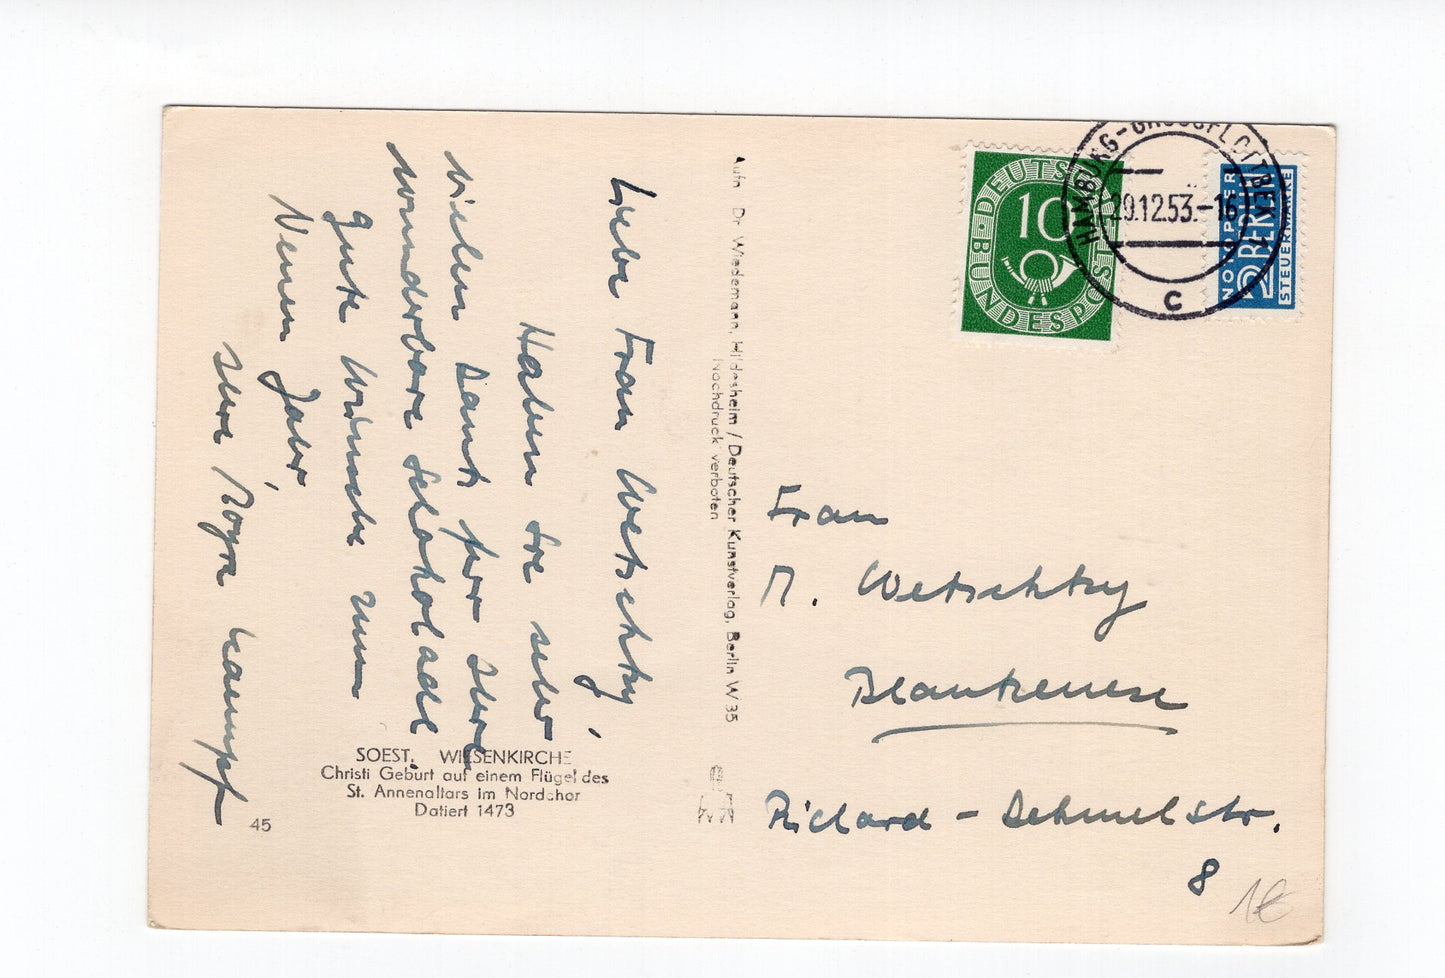 Liebe Frau Wetschky,
Haben Sie sehr
vielen Dank für Ihre
wunderbare Schokolade
gute Wünsche zum
Neuen Jahr,
Ihre
Aufn. Dr. Wiedemann, Hildesheim / Deutscher Kunstverlag, Berlin W 35
Nachdruck verboten
SOEST, WIESENKIRCHE
Christi Geburt auf einem Flügel des
St. Annenaltars im Nordchor
Datiert 1473
45
DEUTSCHE BUNDESPOST
10
HAMBURG-GROSSFLOTTBEK 1
29.12.53.-16
c
NOTOPFER
2 BERLIN
STEUERMARKE
Frau
M. Wetschky
Blankenese
Richard-Dehmelstr.
8
1€